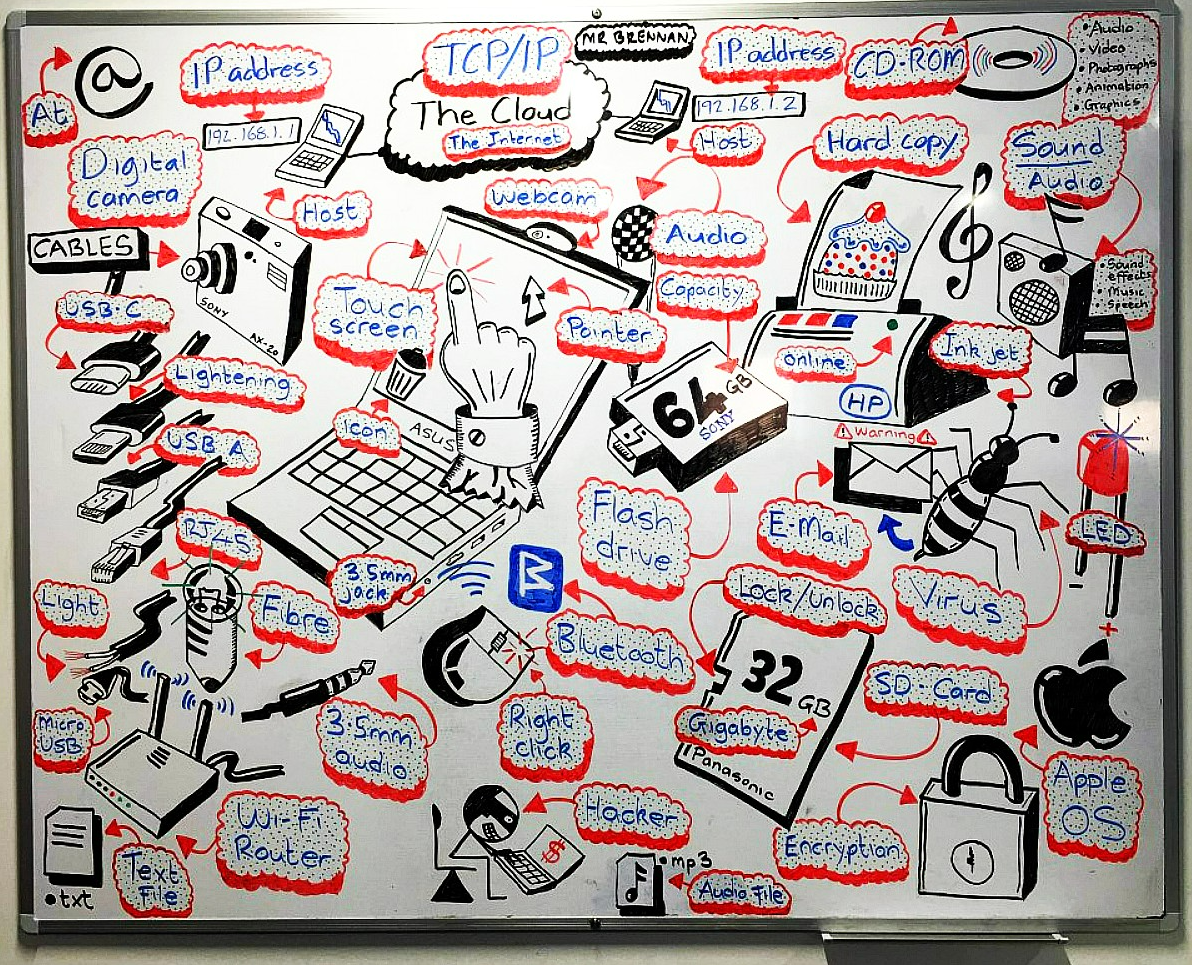 @
At
IP address
192.168.1.1
TCP/IP
MR BRENNAN
The Cloud
The Internet
IP address
192.168.1.2
CD-ROM
• Audio
• Video
• Photographs
• Animation
• Graphics
Digital
camera
Host
Webcam
Host
Hard copy
Sound
Audio
CABLES
SONY
AX-20
Touch
screen
Audio
Pointer
Capacity
Online
HP
Ink jet
• Sound
effects
• Music
• Speech
USB-C
Lightening
USB A
RJ45
Icon
ASUS
64 GB
SONY
Warning
E-Mail
LED
Flash
drive
3.5mm
jack
Light
Fibre
Bluetooth
Lock/Unlock
Virus
+
Micro
USB
3.5mm
audio
Right
click
32 GB
Gigabyte
Panasonic
SD-Card
Apple
OS
Wi-Fi
Router
Text
File
•txt
Hacker
$
•mp3
Audio File
Encryption